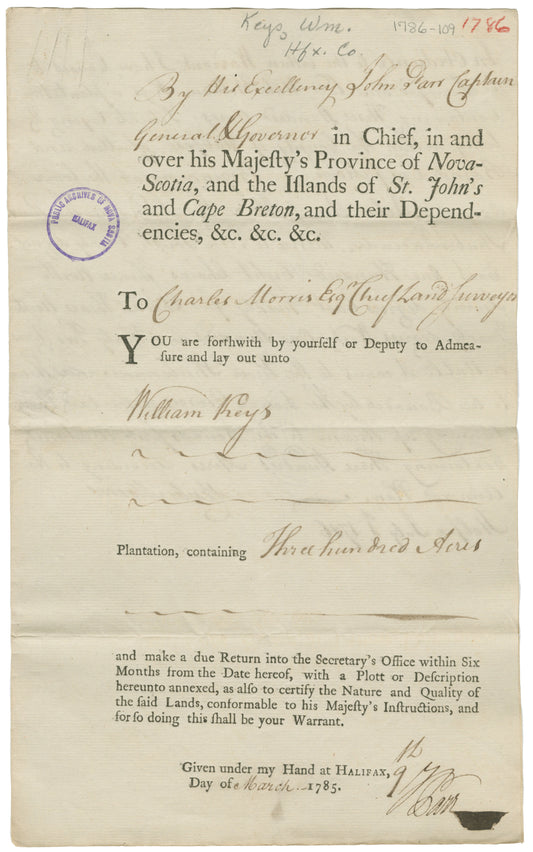 Keys, Wm.
Hfx. Co.
1786-109
1786
By His Excellency John Parr Captain
General & Governor in Chief, in and
over his Majeſty's Province of Nova-
Scotia, and the Iſlands of St. John's
and Cape Breton, and their Depend-
encies, &c. &c. &c.
PUBLIC ARCHIVES OF NOVA SCOTIA
HALIFAX
To Charles Morris Esqr Chief Land Surveyor
YOU are forthwith by yourſelf or Deputy to Admea-
ſure and lay out unto
William Keys
Plantation, containing Three hundred Acres
and make a due Return into the Secretary's Office within Six
Months from the Date hereof, with a Plott or Deſcription
hereunto annexed, as alſo to certify the Nature and Quality of
the ſaid Lands, conformable to his Majeſty's Inſtructions, and
for ſo doing this ſhall be your Warrant.
Given under my Hand at HALIFAX, 9th
Day of March 1785.
J Parr